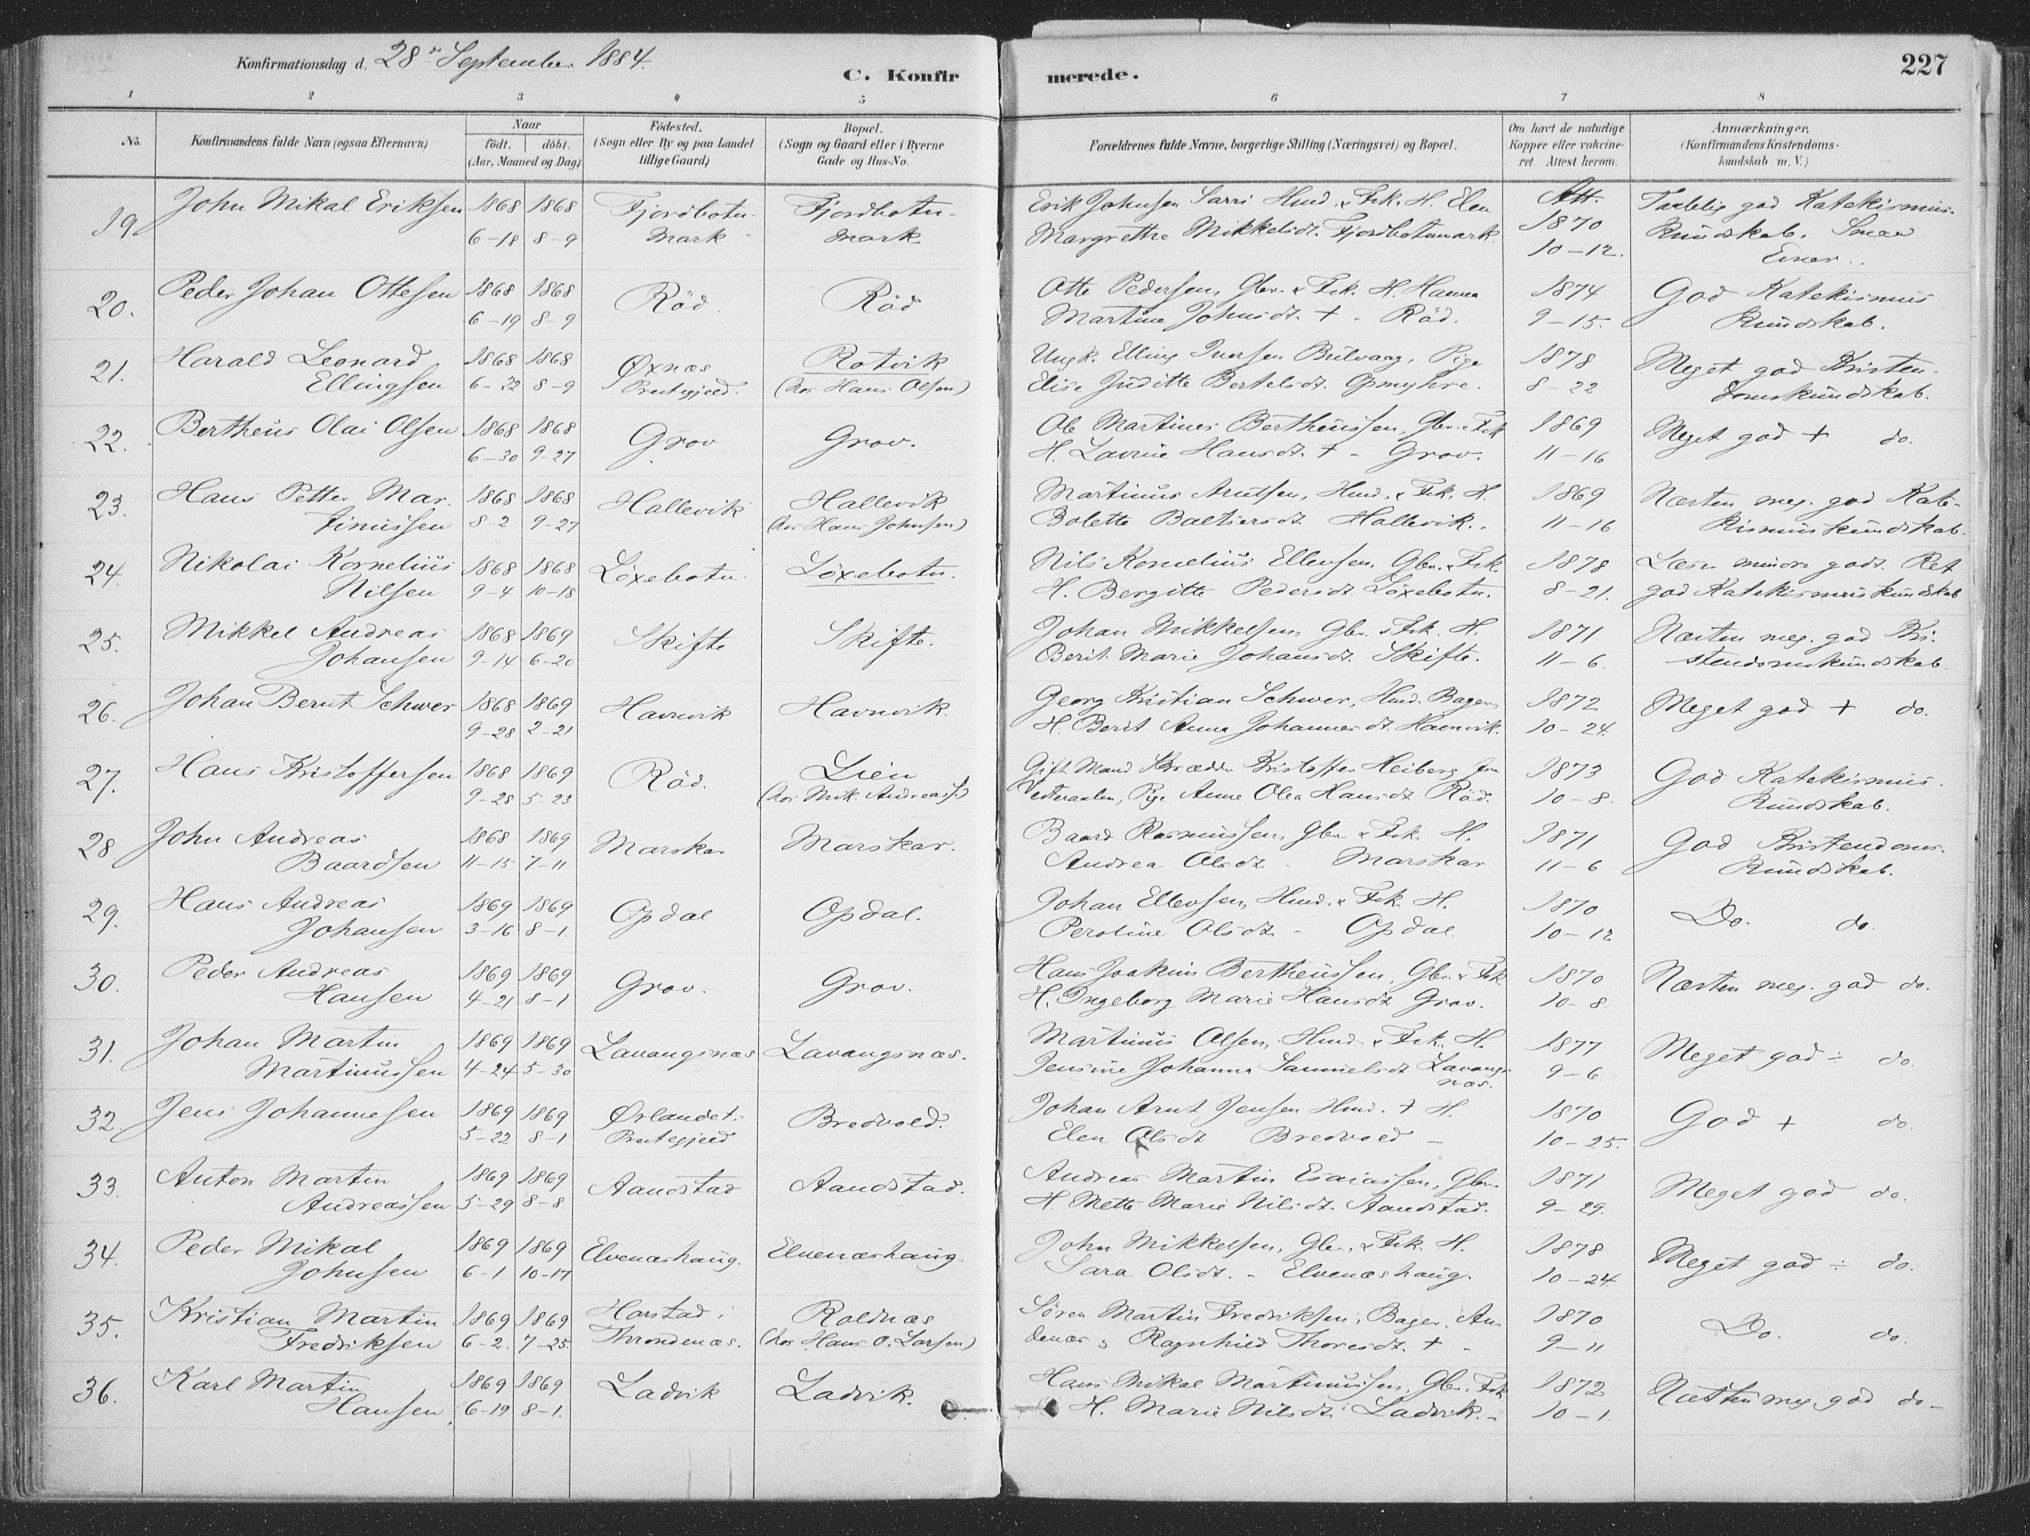 Konfirmationsdag d. 28de September 1884.
C. Konfirmerede.
227
1 2 3 4 5 6 7 8
No.
Konfirmandens fulde Navn (ogsaa Efternavn)
Naar
födt. döbt.
(Aar, Maaned og Dag)
Födested.
(Sogn eller By og paa Landet
tillige Gaard)
Bopæl.
(Sogn og Gaard eller i Byerne
Gade og Hus-No.
Forældrenes fulde Navne, borgerlige Stilling (Næringsvei) og Bopæl.
Om havt de naturlige
Kopper eller vakcine-
ret. Attest herom.
Anmærkninger.
(Konfirmandens Kristendoms-
kundskab m. V.)
19. John Mikal Eriksen 1868 1868 Fjordbotn- Fjordbotn- Erik Johnsen Sarri Hmd. & Fsk. H. Elen Att. 1870 Taalelig god Katekismus-
6-18 8-9 mark mark. Margrethe Mikkelsdt. Fjordbotnmark. 10-12. kundskab. Smaa Evner.
20. Peder Johan Ottesen 1868 1868 Röd. Röd Otte Pedersen, Gbr. & Fsk. H. Hanna 1874 God Katekismus
6-19 8-9 Martine Johnsdt. + - Röd. 9-15. kundskab.
21. Harald Leonard 1868 1868 Øxnæs Rotvik Ungk. Elling Iversen Bulvaag, Pige 1878 Meget god Kristen-
Ellingsen 6-22 8-9 Prestegjeld. (hos Hans Olsen) Elise Juditte Bertelsdt. Opmyhre. 8-22 domskundskab.
22. Bertheus Olai Olsen 1868 1868 Grov Grov. Ole Martines Bertheussen, Gbr. & Fsk 1869 Meget god + do.
6-30 9-27 H. Lavine Hansdt. + - Grov. 11-16
23. Hans Petter Mar- 1868 1868 Hallevik Hallevik Martinus Arntsen, Hmd. & Fsk. H. 1869 Næsten meg. god Kate-
tinussen 8-2 9-27 (hos Hans Johnsen) Bolette Baltsersdt. Hallevik. 11-16 kismuskundskab.
24. Nikolai Kornelius 1868 1868 Löxebotn. Löxebotn. Nils Kornelius Ellevsen, Gbr. & Fsk. 1878 Læser mindre godt. Ret
Nilsen 9-4 10-18 H. Bergitte Pedersdt. Löxebotn. 8-21. god Katekismuskundskab
25. Mikkel Andreas 1868 1869 Skifte Skifte. Johan Mikkelsen, Gbr. & Fsk. H. 1871 Næsten meg. god Kri-
Johansen 9-14 6-20 Berit Marie Johansdt. Skifte. 11-6. stendomskundskab.
26. Johan Bernt Schwer 1868 1869 Havnvik Havnvik. Georg Kristian Schwer, Hmd. Bager, 1872 Meget god + do.
9-28 2-21 H. Berit Anna Johannesdt. Havnvik. 10-24.
27. Hans Kristoffersen 1868 1869 Röd. Lien Gift Mand Skrædder Kristoffer Heiberg fra 1873 God Katekismus-
9-28 5-23 (hos Mik. Andreass.) Vesteraalen, Pige Anne Olea Hansdt Röd. 10-8. kundskab.
28. John Andreas 1868 1869 Marskar Marskar. Baard Rasmussen, Gbr. & Fsk. H. 1871 God Kristendoms-
Baardsen 11-15 7-11 Andrea Olsdt. - Marskar 11-6 kundskab.
29. Hans Andreas 1869 1869 Opdal Opdal. Johan Ellevsen, Hmd. & Fsk. H. 1870 Do. do.
Johansen 3-16 8-1. Peroline Olsdt. - Opdal. 10-12
30. Peder Andreas 1869 1869 Grov. Grov. Hans Joakim Bertheussen, Gbr. & Fsk. 1870 Næsten meg. god do.
Hansen 4-21 8-1 H. Ingeborg Marie Hansdt Grov. 10-8.
31. Johan Martin 1869 1869 Lavangsnæs Lavangsnæs. Martinus Olsen, Hmd. & Fsk. H. 1877 Meget god ÷ do.
Martinussen 4-24 5-30 Jensine Johanna Samuelsdt Lavangsnæs. 9-6
32. Jens Johannesen 1869 1869 Ørlandet Bredvold. Johan Arnt Jensen Hmd. + H. 1870 God + do.
5-22 8-1 Prestegjeld Elen Olsdt Bredvold - 10-25.
33. Anton Martin 1869 1869 Aandstad Aandstad. Andreas Martin Esaiassen, Gbr. 1871 Meget god do.
Andreassen 5-29 8-8 H. Mette Marie Nilsdt. Aandstad. 9-29.
34. Peder Mikal 1869 1869 Elvenæshaug. Elvenæshaug. John Mikkelsen, Gbr. & Fsk. H. 1878 Meget god ÷ do.
Johnsen 6-1. 10-17 Sara Olsdt. - Elvenæshaug. 10-24.
35. Kristian Martin 1869 1869 Harstad i Roldnæs Sören Martin Fredriksen, Bager, An- 1870 Do. do.
Fredriksen 6-2. 7-25. Throndenæs. (hos Hans O. Larsen) denæs, Ragnhild Thoresdt. + - 9-11
36. Karl Martin 1869 1869 Ladvik Ladvik. Hans Mikal Martinussen, Gbr. Fsk 1872 Næsten meg. god do-
Hansen 6-19 8-1. H. Marie Nilsdt Ladvik. - 10-1.